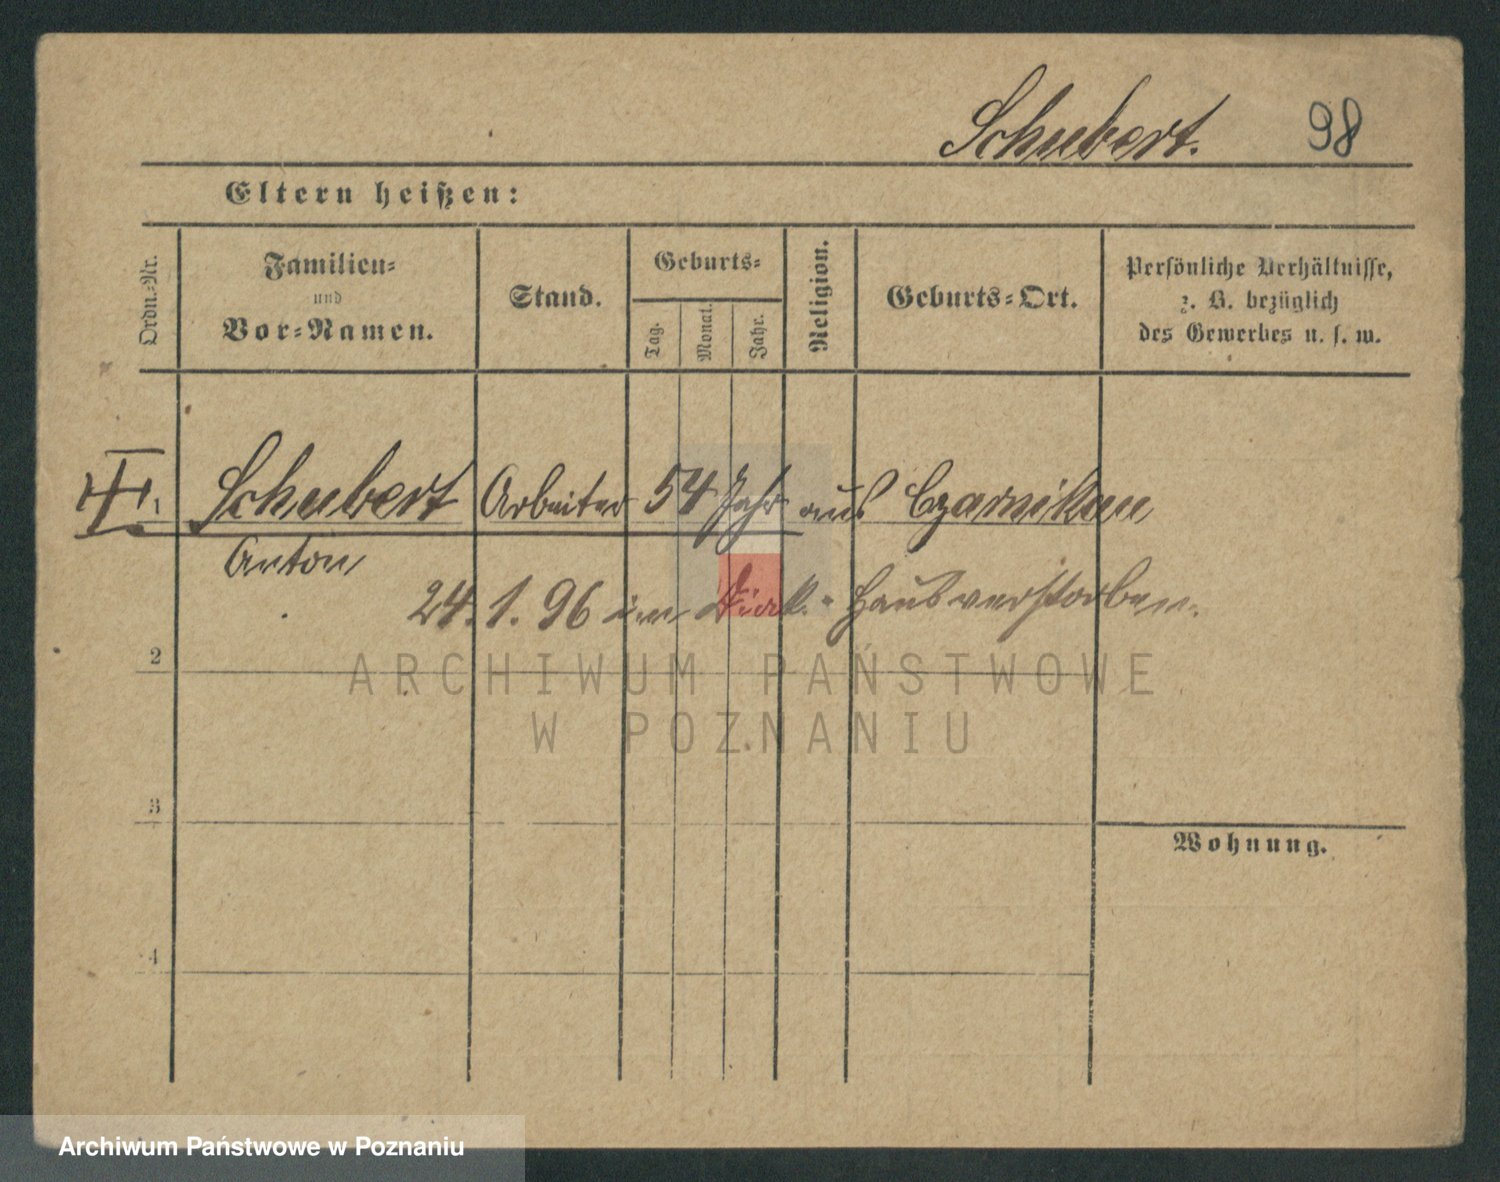 Schubert. 98
Eltern heißen:
Ordn.-Nr.
Familien-
und
Vor-Namen.
Stand.
Geburts-
Tag.
Monat.
Jahr.
Religion.
Geburts-Ort.
Persönliche Verhältnisse,
z. B. bezüglich
des Gewerbes u. s. w.
Schubert Arbeiter 54 Jahr aus Czarnikau
Anton
24. 1. 96 im Diak.-Haus verstorben.
2
ARCHIWUM PAŃSTWOWE
W POZNANIU
3
Wohnung.
4
Archiwum Państwowe w Poznaniu